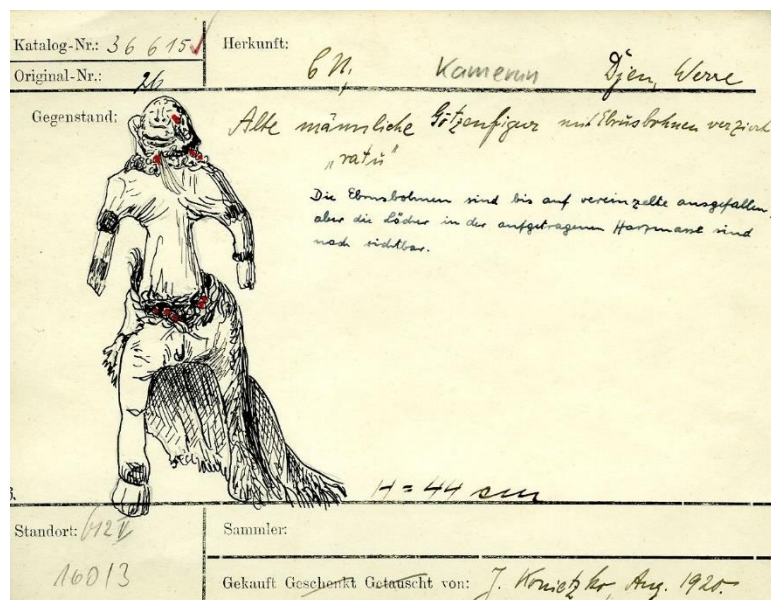 Katalog-Nr.: 36615
Herkunft:
Kamerun Djen, Werre
Original-Nr.: 26
Gegenstand:
Alte männliche Götzenfigur mit Ebrusbohnen verziert
„ratú"
Die Ebrusbohnen sind bis auf vereinzelte ausgefallen,
aber die Löcher in der aufgetragenen Harzmasse sind
noch sichtbar.
H = 44 cm
Standort:
Sammler:
16013
Gekauft Geschenkt Getauscht von: J. Konietzko, Aug. 1920.